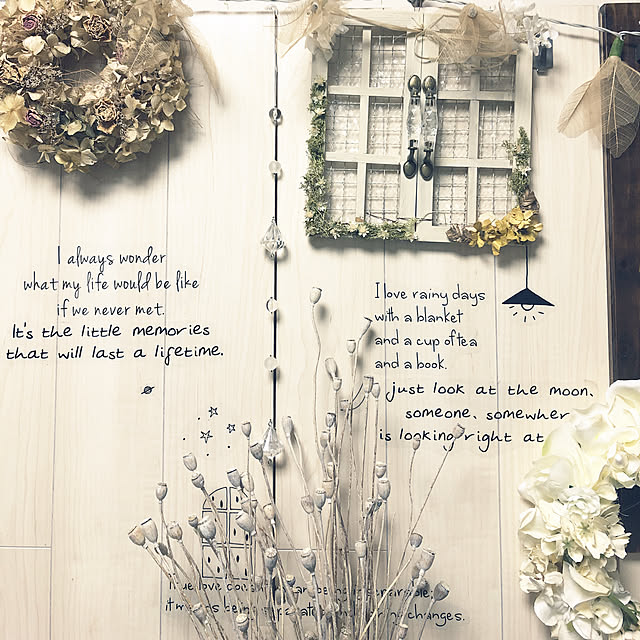 I always wonder
what my life would be like
if we never met.
It's the little memories
that will last a lifetime.
I love rainy days
with a blanket
and a cup of tea
and a book.
just look at the moon.
someone, somewher
is looking right at
True love
it being changes.